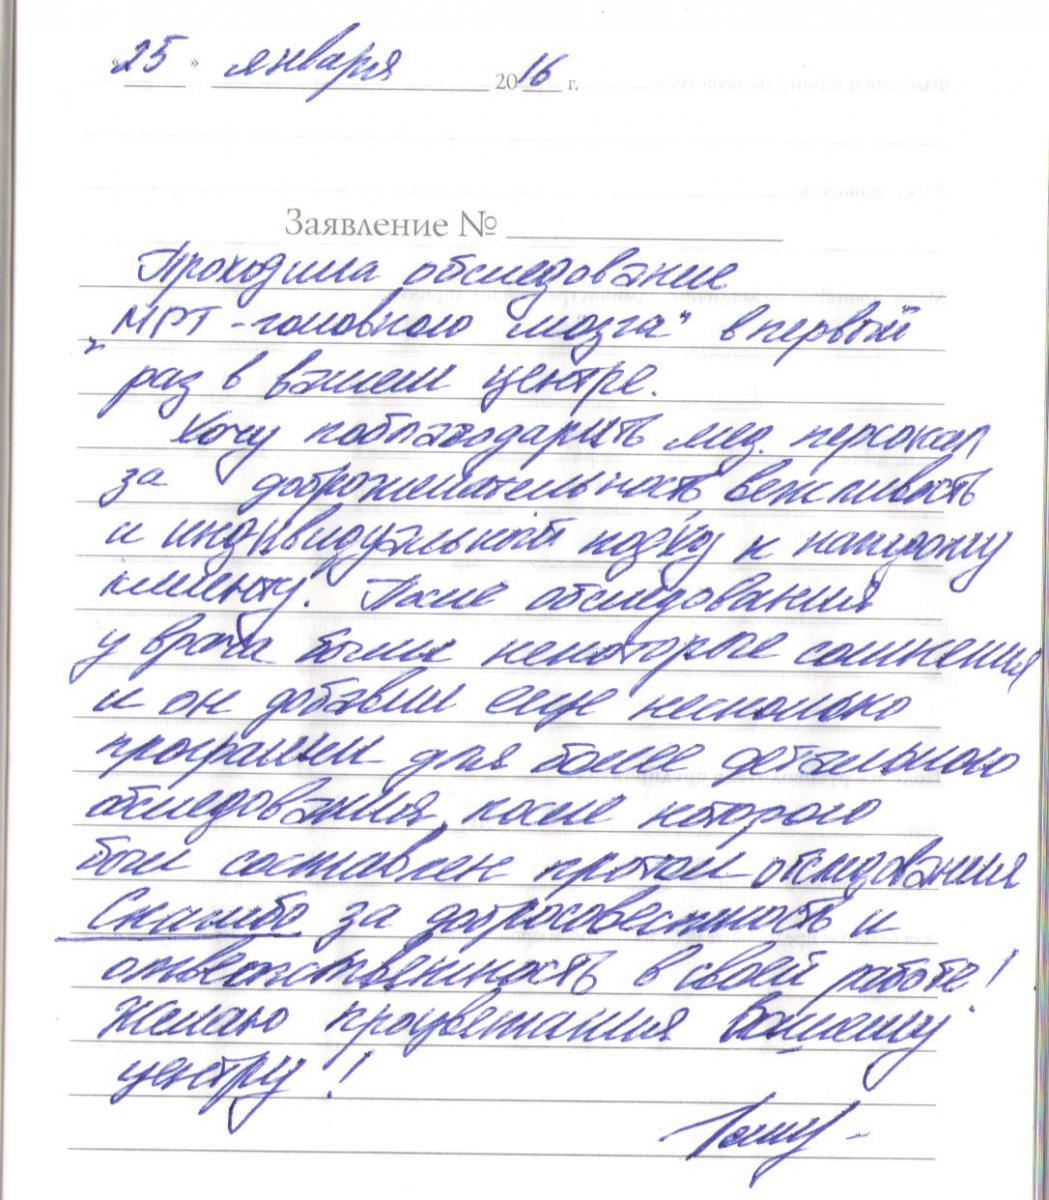 «25» января 2016 г.
Заявление №
Проходила обследование
„МРТ - головного мозга" в первый
раз в вашем центре.
Хочу поблагодарить мед. персонал
за доброжелательность, вежливость
и индивидуальный подход к каждому
клиенту. После обследования
у врача были некоторые сомнения
и он добавил еще несколько
программ для более детального
обследования, после которого
был составлен протокол обследования
Спасибо за добросовестность и
ответственность в своей работе!
Желаю процветания Вашему
центру!